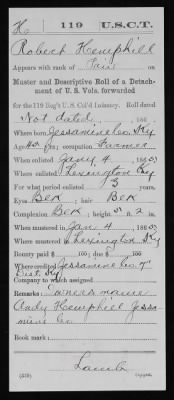 H 119 U.S.C.T.
Robert Hemphill
Appears with rank of Priv on
Muster and Descriptive Roll of a Detach-
ment of U. S. Vols. forwarded
for the 119 Reg't U.S. Col'd Infantry. Roll dated
Not dated, 186 .
Where born Jessamine Co. Ky
Age y'rs; occupation Farmer
When enlisted Jany 4, 1865
Where enlisted Lexington Ky
For what period enlisted 3 years.
Eyes Blk; hair Blk
Complexion Blk; height 5 ft. 2 in.
When mustered in Jan 4, 1865
Where mustered in Lexington Ky
Bounty paid $ 100; due $ 100
Where credited Jessamine Co. 7"
Dist. Ky
Company to which assigned
Remarks: Owners name
Andy Hemphill Jessa
mine Co.
Book mark:
Lamb
(339) Copyist.